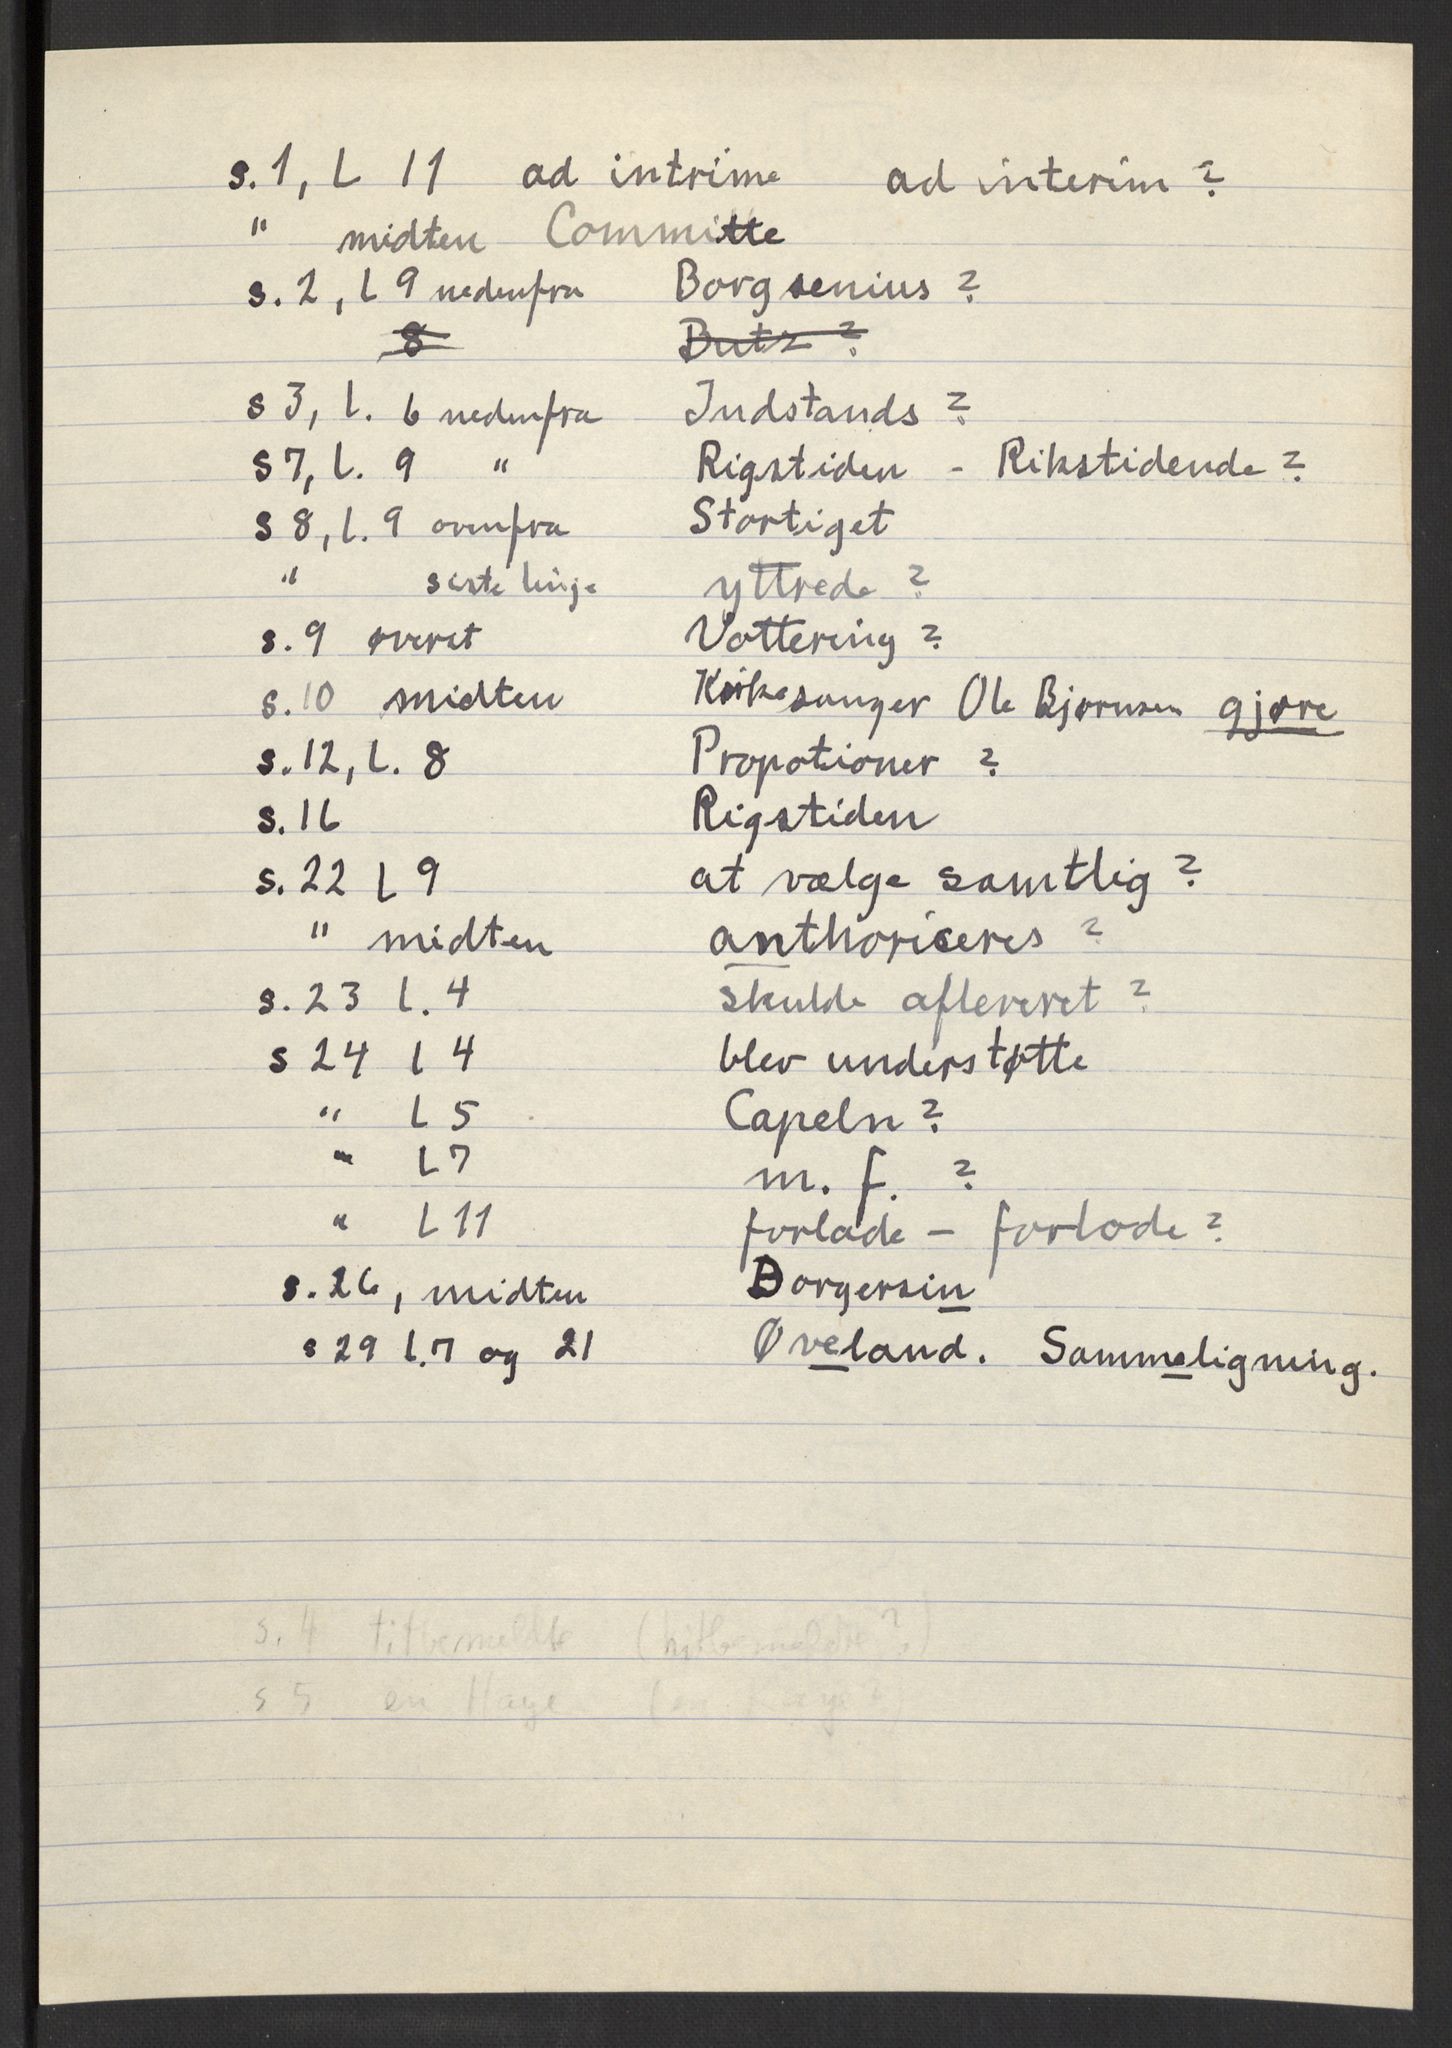 s.1, L 11 ad intrime ad interim ?
" midten Committe
s.2, L 9 nedenfra Borgsenius ?
8 Butz ?
s 3, l. 6 nedenfra Indstands ?
s 7, l. 9 " Rigstiden - Rikstidende ?
s 8, l. 9 ovenfra Stortiget
" siste linje yttrede ?
s.9 øverst Vottering ?
s.10 midten Kirkesanger Ole Bjørnsen gjøre
s.12, l. 8 Propotioner ?
s.16 Rigstiden
s.22 L 9 at vælge samtlig ?
" midten anthoriceres ?
s.23 l. 4 skulde afleveret ?
s 24 l 4 blev understøtte
" L 5 Capeln ?
" L 7 m. f. ?
" L 11 forlade - forlode ?
s.26, midten Borgersin
s 29 l.7 og 21 Øveland. Sammeligning.
s. 4 titbemeldte
s 5 en Haye